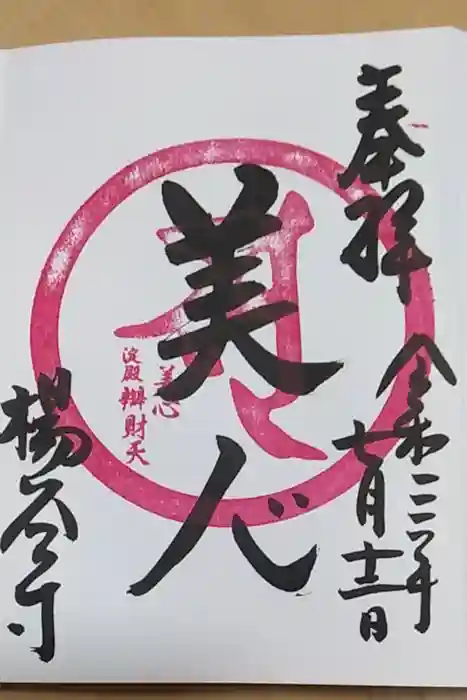 奉拝
令和三年
七月十三日
美心
美心
淀殿辨財天
楊谷寺